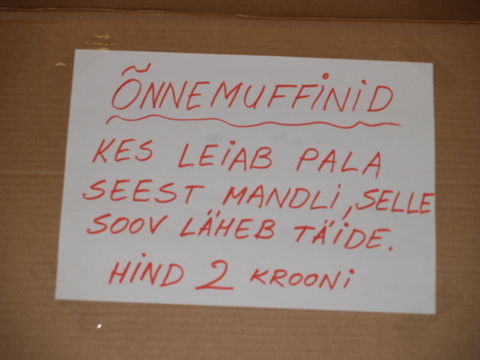 ÕNNEMUFFINID
KES LEIAB PALA
SEEST MANDLI, SELLE
SOOV LÄHEB TÄIDE.
HIND 2 KROONI